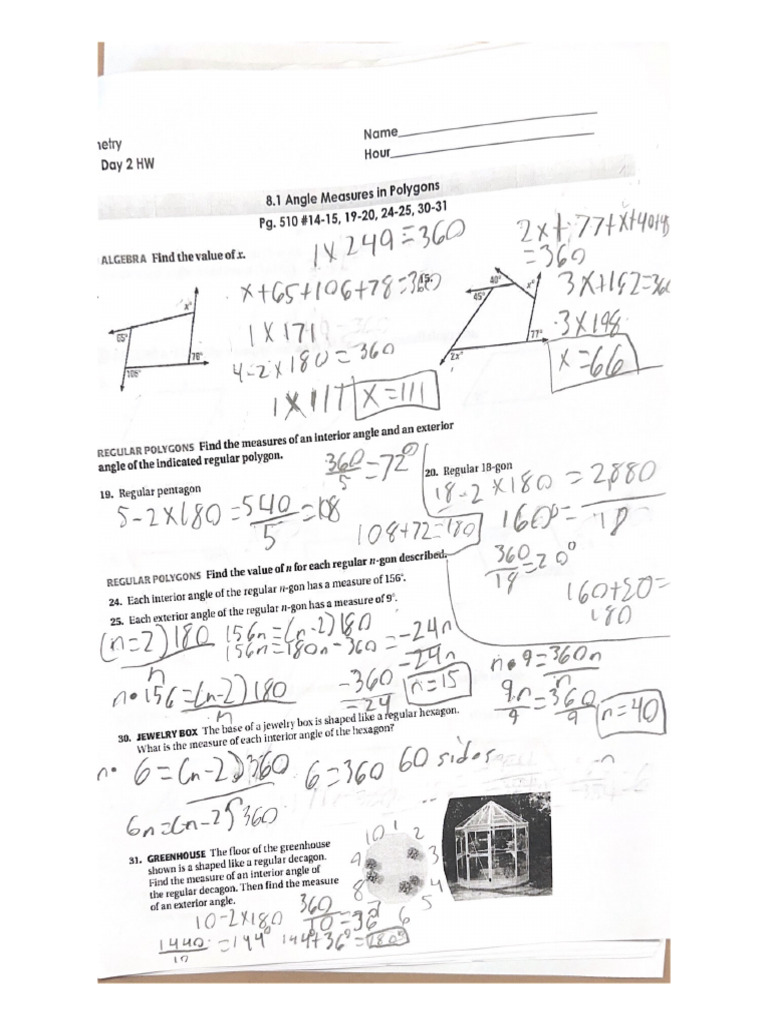 netry
Day 2 HW
Name
Hour
8.1 Angle Measures in Polygons
Pg. 510 #14-15, 19-20, 24-25, 30-31
ALGEBRA Find the value of x.
1 x 249 = 360
x+65+106+78=360
1 x 171
4-2 x 180 = 360
1 x 117
x=111
x°
65°
78°
106°
15.
2x+77+x+40+45
=360
3x+162=360
3 x 198
x=66
40°
x°
45°
77°
2x°
REGULAR POLYGONS Find the measures of an interior angle and an exterior
angle of the indicated regular polygon.
19. Regular pentagon
360/5 = 72°
5-2x180 = 540/5 = 108
108+72=180
20. Regular 18-gon
18-2 x 180 = 2880
160° = /18
360/18 = 20°
160+20=
180
REGULAR POLYGONS Find the value of n for each regular n-gon described.
24. Each interior angle of the regular n-gon has a measure of 156°.
25. Each exterior angle of the regular n-gon has a measure of 9°.
(n=2)180/n
156n=(n-2)180
156n=180n-360
=-24n/-24n
n•156=(n-2)180/n
-360/-24
n=15
n•9=360n/n
9n/9=360/9
n=40
30. JEWELRY BOX The base of a jewelry box is shaped like a regular hexagon.
What is the measure of each interior angle of the hexagon?
n• 6=(n-2)360
6=360
60 sides
6n=(n-2)360
31. GREENHOUSE The floor of the greenhouse
shown is a shaped like a regular decagon.
Find the measure of an interior angle of
the regular decagon. Then find the measure
of an exterior angle.
10 1 2
9 3
8 4
7 6 5
10-2x180
360/10=36°
1440/10=144°
144°+36°=180°